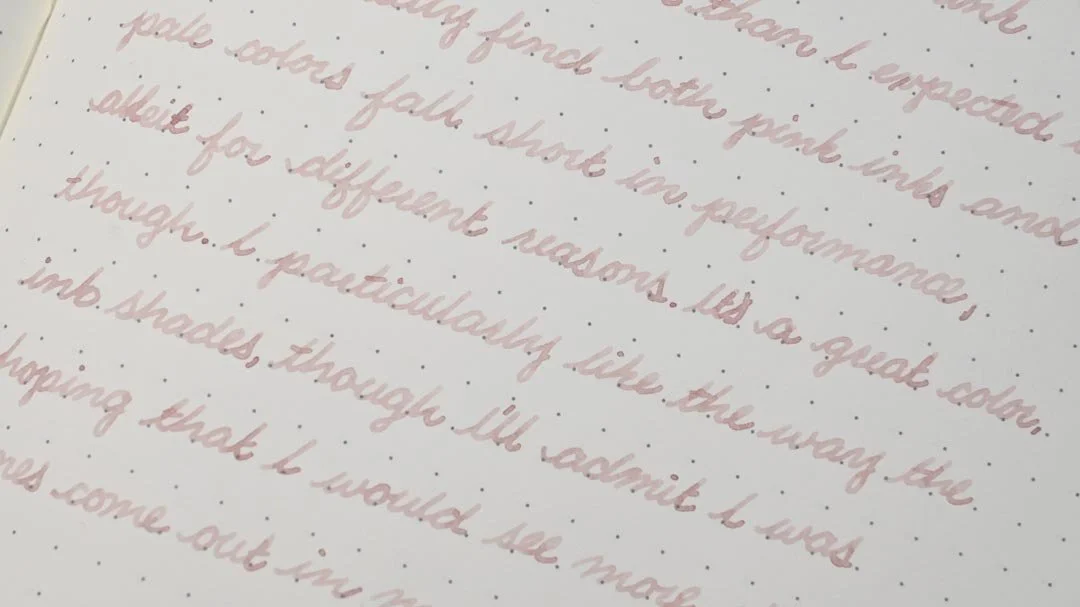 ink.
than I expected
find both pink inks and
pale colors fall short in performance,
albeit for different reasons. It's a great color,
though. I particularly like the way the
ink shades, though I'll admit I was
hoping that I would see more
come out in